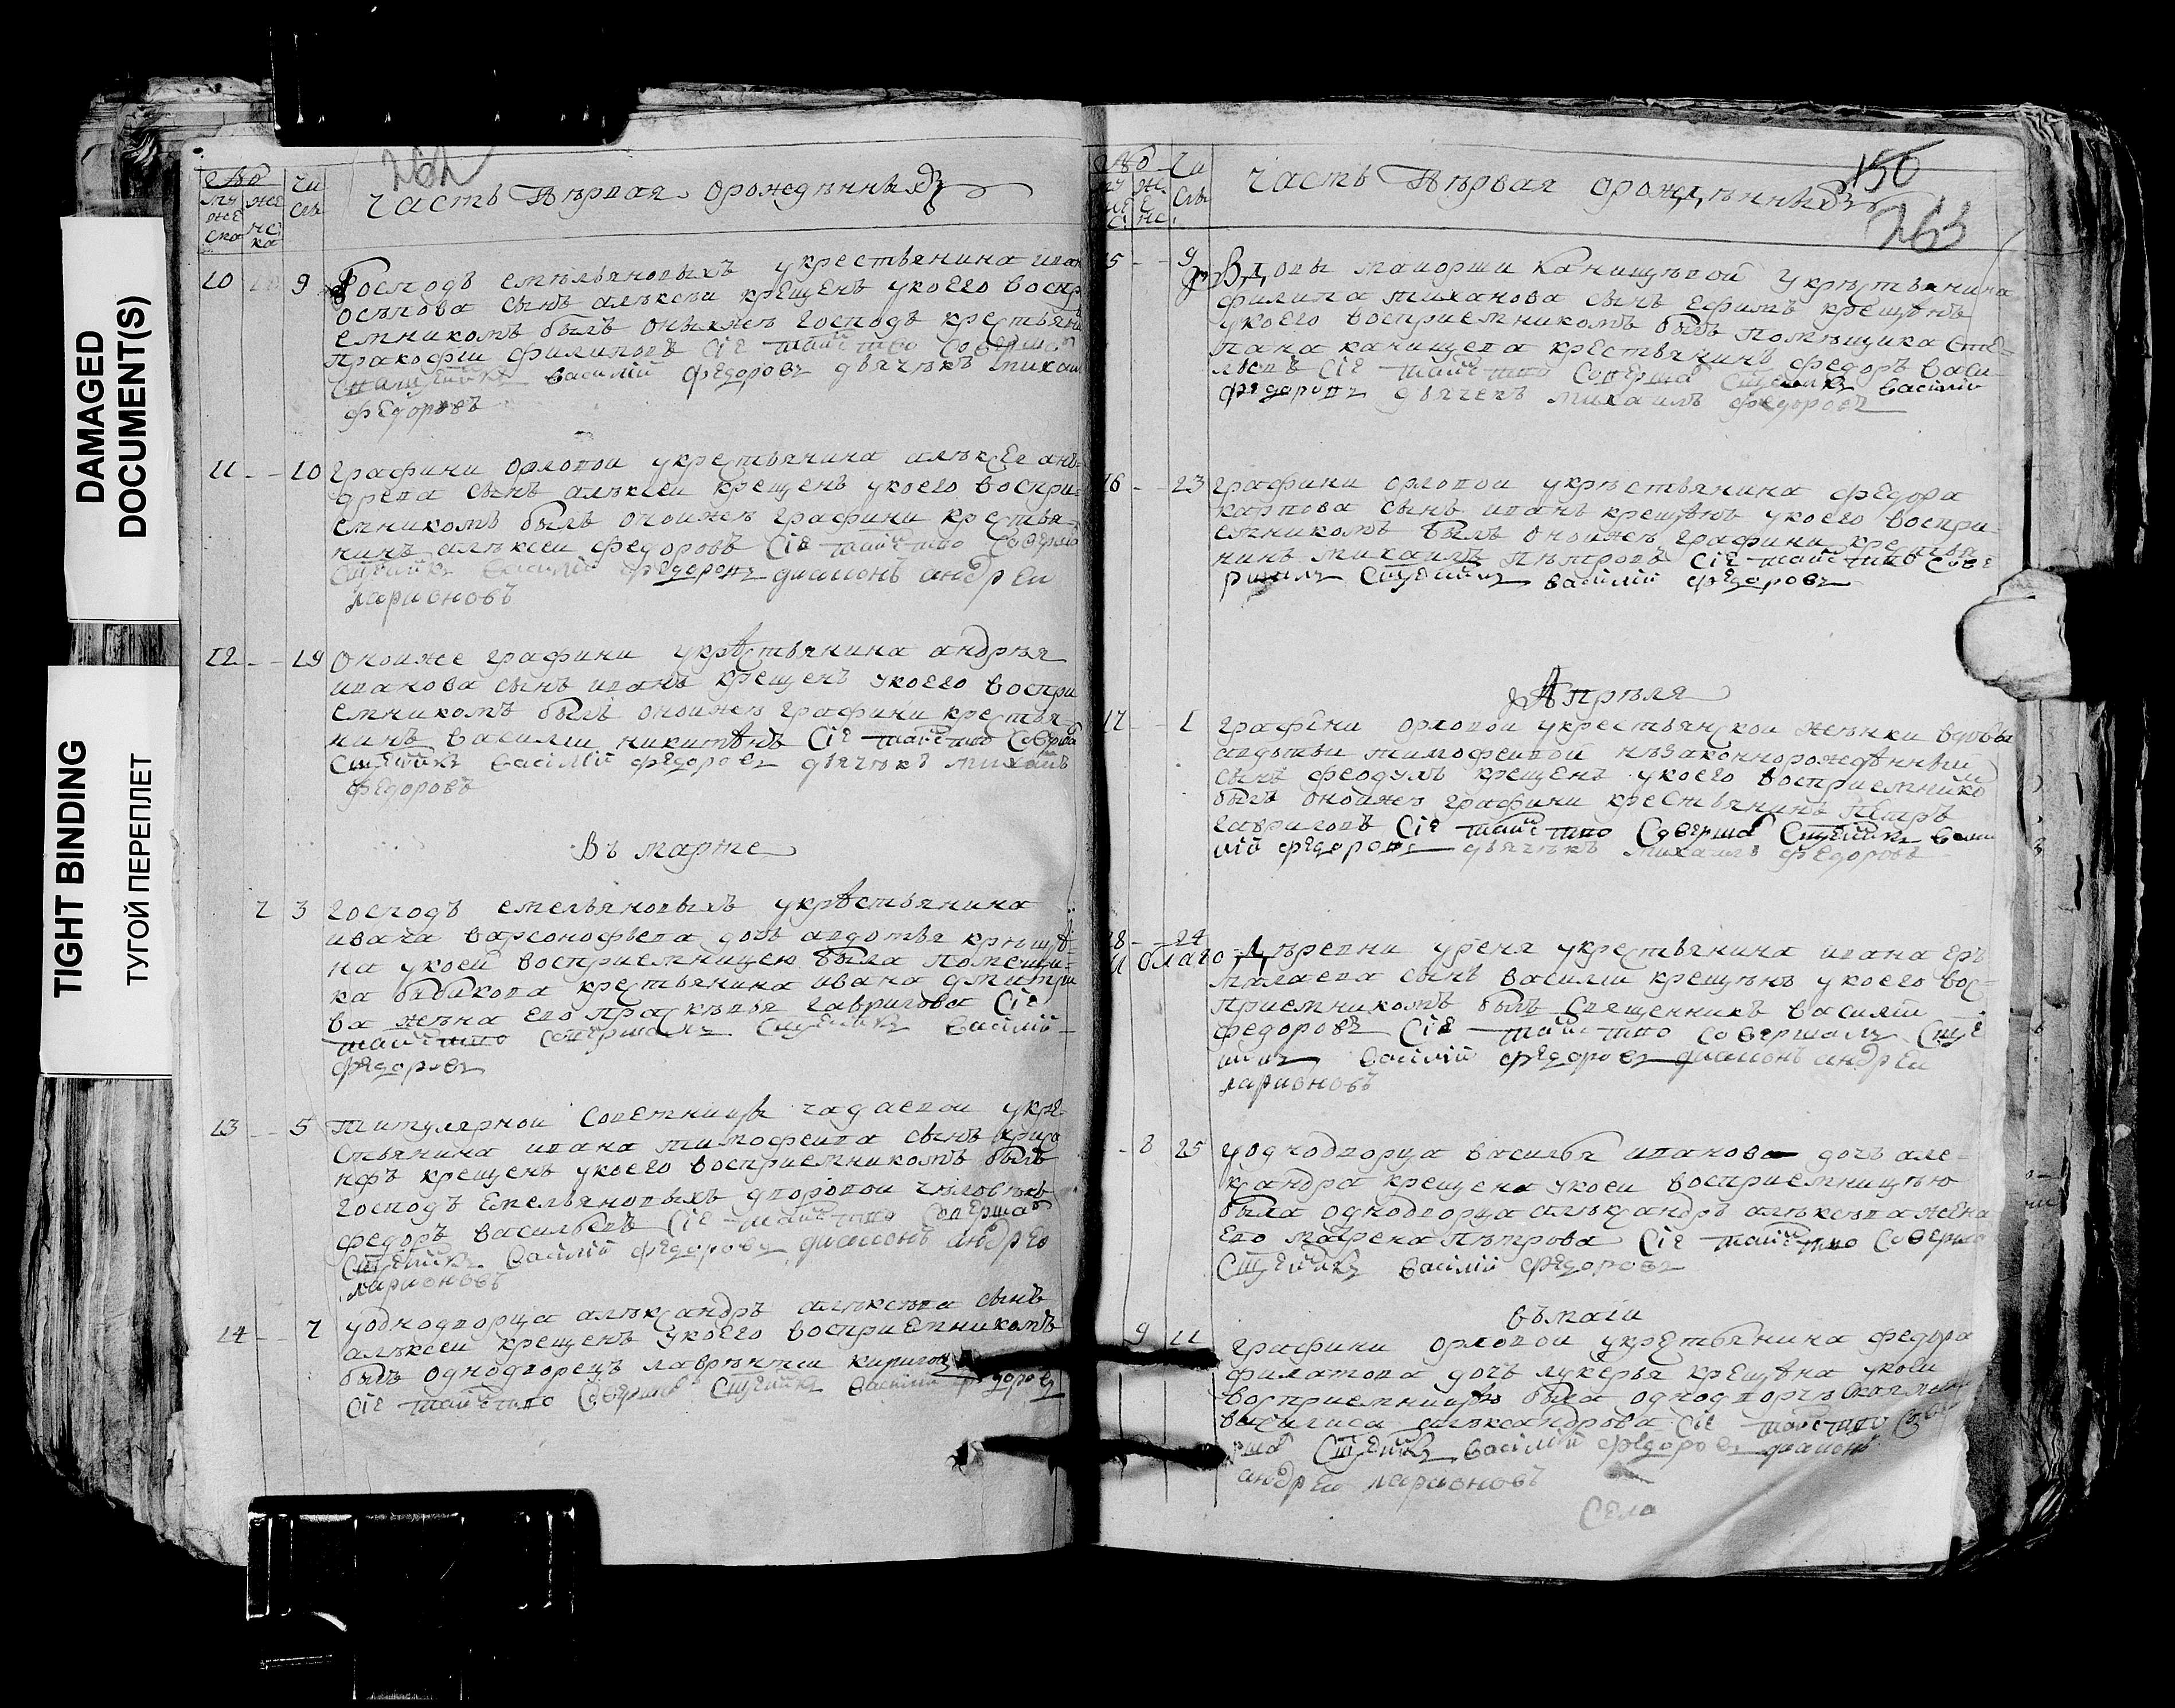 DAMAGED
DOCUMENT(S)
TIGHT BINDING
ТУГОЙ ПЕРЕПЛЕТ
262
часть первая о рожденныхъ
10 9 Господъ емельяновыхъ у крестьянина иван
осипова сынъ алѣксеи крещенъ у коего воспр
емникомъ былъ оныхже господъ крестьяни
пракофіи филиповъ сіе таинство соверша
священникъ василій федоровъ дьячекъ михаил
федоровъ
11 10 графини орловои у крестьянина алѣксея ан
древа сынъ алѣксеи крещенъ у коего воспри
емникомъ былъ оноиже графини крестья
нинъ алѣксеи федоровъ сіе таинство соверш
священникъ василій федоровъ диаконъ андреи
ларионовъ
12 19 Оноиже графини у крѣстьянина андрѣя
иванова сынъ иванъ крещенъ у коего воспри
емникомъ былъ оноиже графини крестья
нинъ василии никитѣнъ сіе таинство соверша
священникъ василій федоровъ дьячекъ михаилъ
федоровъ
Въ марте
7 3 господъ емельяновыхъ у крѣстьянина
ивана варсонофьева дочь авдотья крѣщѣ
на у коей восприемницею была помещи
ка бибикова крестьянина ивана дмитри
ва жена его прасковья гаврилова сіе
таинство совершалъ священникъ василій
федоровъ
13 5 титулярнои советницы чадаевои у кре
стьянина ивана тимофеива сынъ
нфъ крещенъ у коего восприемникомъ былъ
господъ емельяновыхъ дворовои человѣкъ
федоръ васильевъ сіе таинство соверша
священникъ василій федоровъ диаконъ андреи
ларионовъ
14 7 у однодворца алѣксандръ алѣксева сынъ
алѣксеи крещенъ у коего восприемникомъ
былъ однодворецъ лаврѣнтеи кирилов
сіе таинство соверша священникъ василій федоров
часть первая о рожденныхъ
150
263
15 9 Вдовы маиорши канищѣвой у крѣстьянина
филипа тиханова сынъ ефимъ крещенъ
у коего восприемникомъ былъ помѣщика сте
пана канищева крестьянинъ федоръ васи
льевъ сіе таинство соверша священникъ василій
федоровъ дьячекъ михаилъ федоровъ
16 23 графини орловои у крѣстьянина федора
карпова сынъ иванъ крещѣнъ у коего воспри
емникомъ былъ оноиже графини крестья
нинъ михаилъ пѣтровъ сіе таинство сове
ршалъ священникъ василій федоровъ
Апрѣля
17 1 графини орловои у крестьянскои женки вдовы
авдотьи тимофеивои нѣзаконнорождѣнныи
сынъ феодулъ крещенъ у коего восприемнико
былъ оноиже графини крестьянинъ петръ
гавриловъ сіе таинство соверша священникъ васи
лій федоровъ дьячекъ михаилъ федоровъ
18 24 Дѣревни уреня у крестьянина ивана ер
малаева сынъ василии крещенъ у коего вос
приемникомъ былъ священникъ василій
федоровъ сіе таинство совершалъ свяще
нникъ василій федоровъ диаконъ андреи
ларионовъ
8 25 у однодворца василья иванова дочь але
ксандра крещена у коеи восприемницѣю
была однодворца алѣксандръ алѣксева жена
его матрена пѣтрова сіе таинство соверша
священникъ василій федоровъ
въ маіи
9 11 графини орловои у крестьянина федора
филатова дочь лукерья крещѣна у коеи
восприемницѣю была
василиса алѣксандрова сіе таинство сове
рша священникъ василій федоровъ диаконъ
андреи ларионовъ
Села